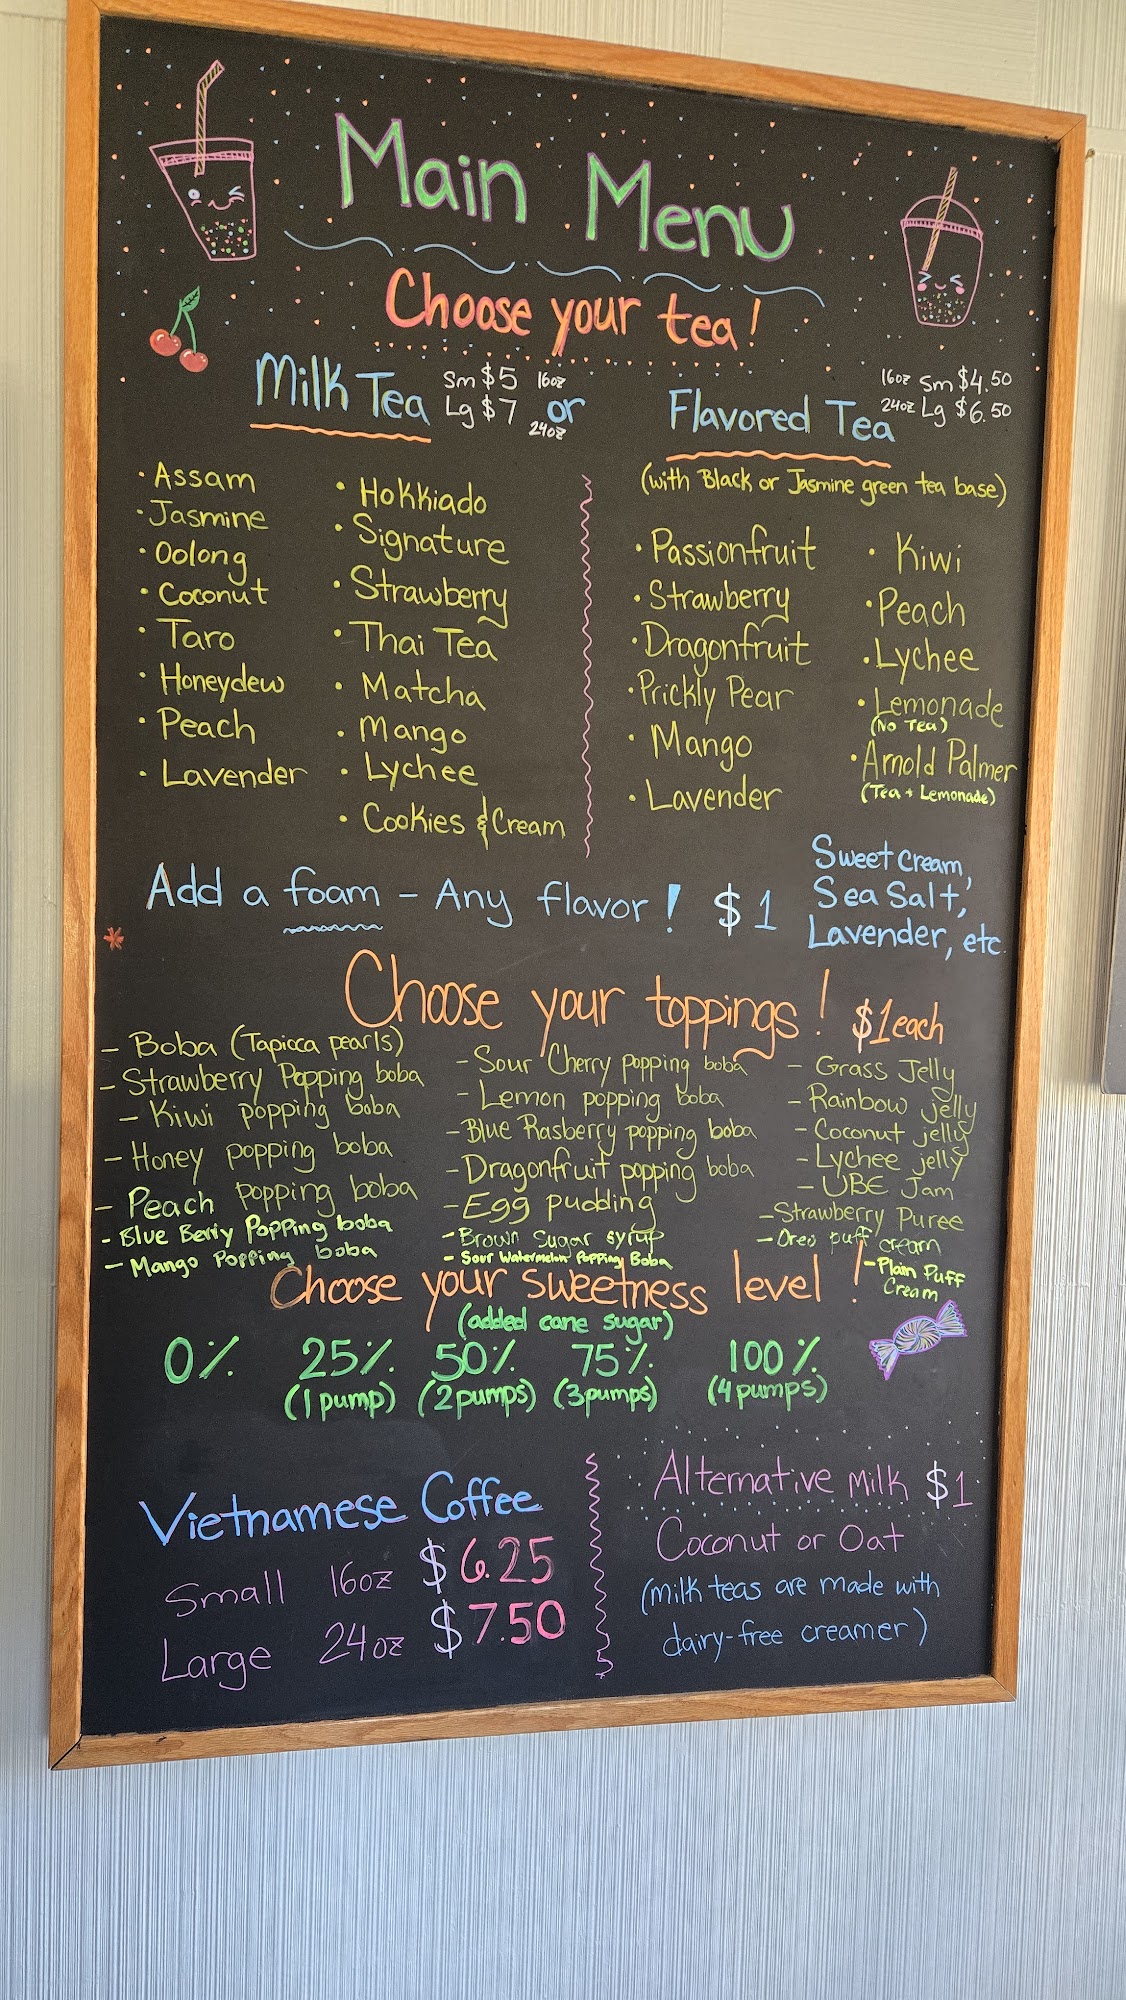 Main Menu
Choose your tea!
Milk Tea
Sm $5 16oz
Lg $7 24oz
or
Flavored Tea
16oz Sm $4.50
24oz Lg $6.50
(with Black or Jasmine green tea base)
• Assam
• Jasmine
• Oolong
• Coconut
• Taro
• Honeydew
• Peach
• Lavender
• Hokkiado
• Signature
• Strawberry
• Thai Tea
• Matcha
• Mango
• Lychee
• Cookies & Cream
• Passionfruit
• Strawberry
• Dragonfruit
• Prickly Pear
• Mango
• Lavender
• Kiwi
• Peach
• Lychee
• Lemonade
(No Tea)
• Arnold Palmer
(Tea + Lemonade)
Add a foam - Any flavor! $1
Sweet cream,
Sea Salt,
Lavender, etc.
*
Choose your toppings! $1 each
- Boba (Tapioca pearls)
- Strawberry Popping boba
- Kiwi popping boba
- Honey popping boba
- Peach popping boba
- Blue Berry Popping boba
- Mango Popping boba
- Sour Cherry popping boba
- Lemon popping boba
- Blue Rasberry popping boba
- Dragonfruit popping boba
- Egg pudding
- Brown Sugar syrup
- Sour Watermelon Popping Boba
- Grass Jelly
- Rainbow jelly
- Coconut jelly
- Lychee jelly
- UBE Jam
- Strawberry Puree
- Oreo puff cream
- Plain Puff
Cream
Choose your sweetness level!
(added cane sugar)
0% 25% 50% 75% 100%
(1 pump) (2 pumps) (3 pumps) (4 pumps)
Vietnamese Coffee
Small 16oz $6.25
Large 24oz $7.50
Alternative Milk $1
Coconut or Oat
(milk teas are made with
dairy-free creamer)